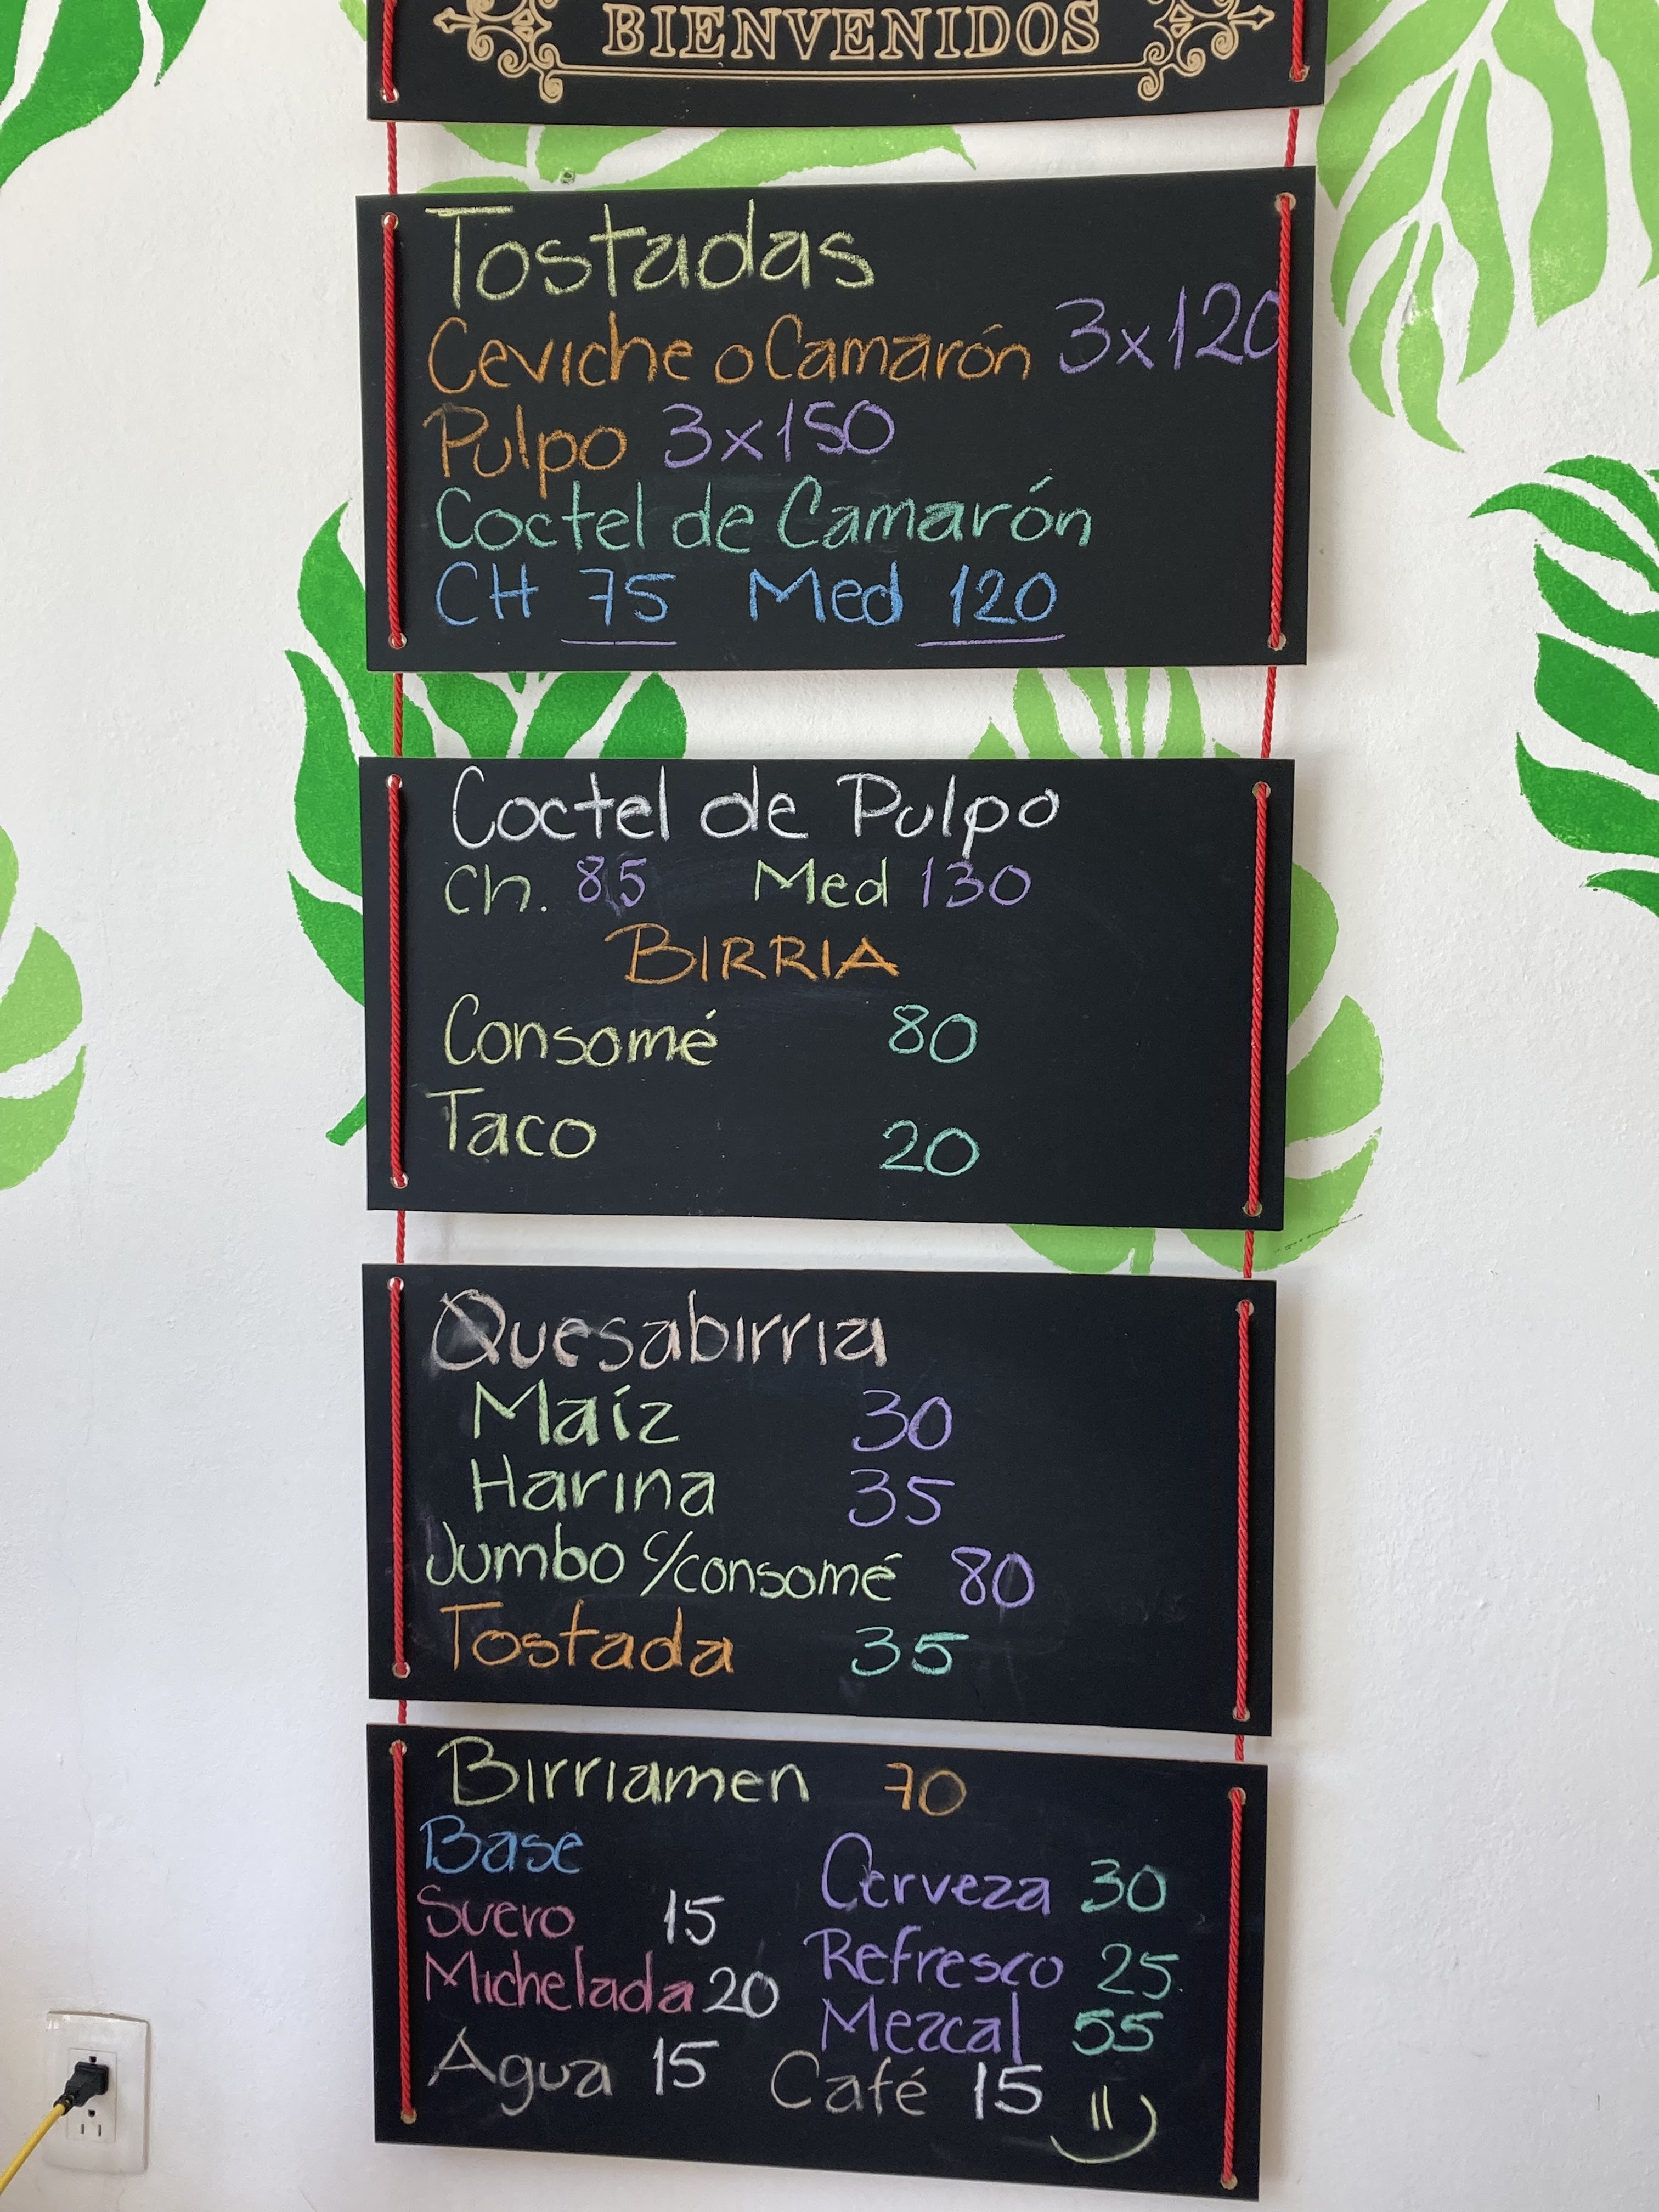 BIENVENIDOS
Tostadas
Ceviche o Camarón 3x120
Pulpo 3x150
Coctel de Camarón
CH 75 Med 120
Coctel de Pulpo
Ch. 85 Med 130
BIRRIA
Consomé 80
Taco 20
Quesabirria
Maíz 30
Harina 35
Jumbo c/consomé 80
Tostada 35
Birriamen 70
Base
Suero 15
Michelada 20
Cerveza 30
Refresco 25
Mezcal 55
Agua 15 Café 15